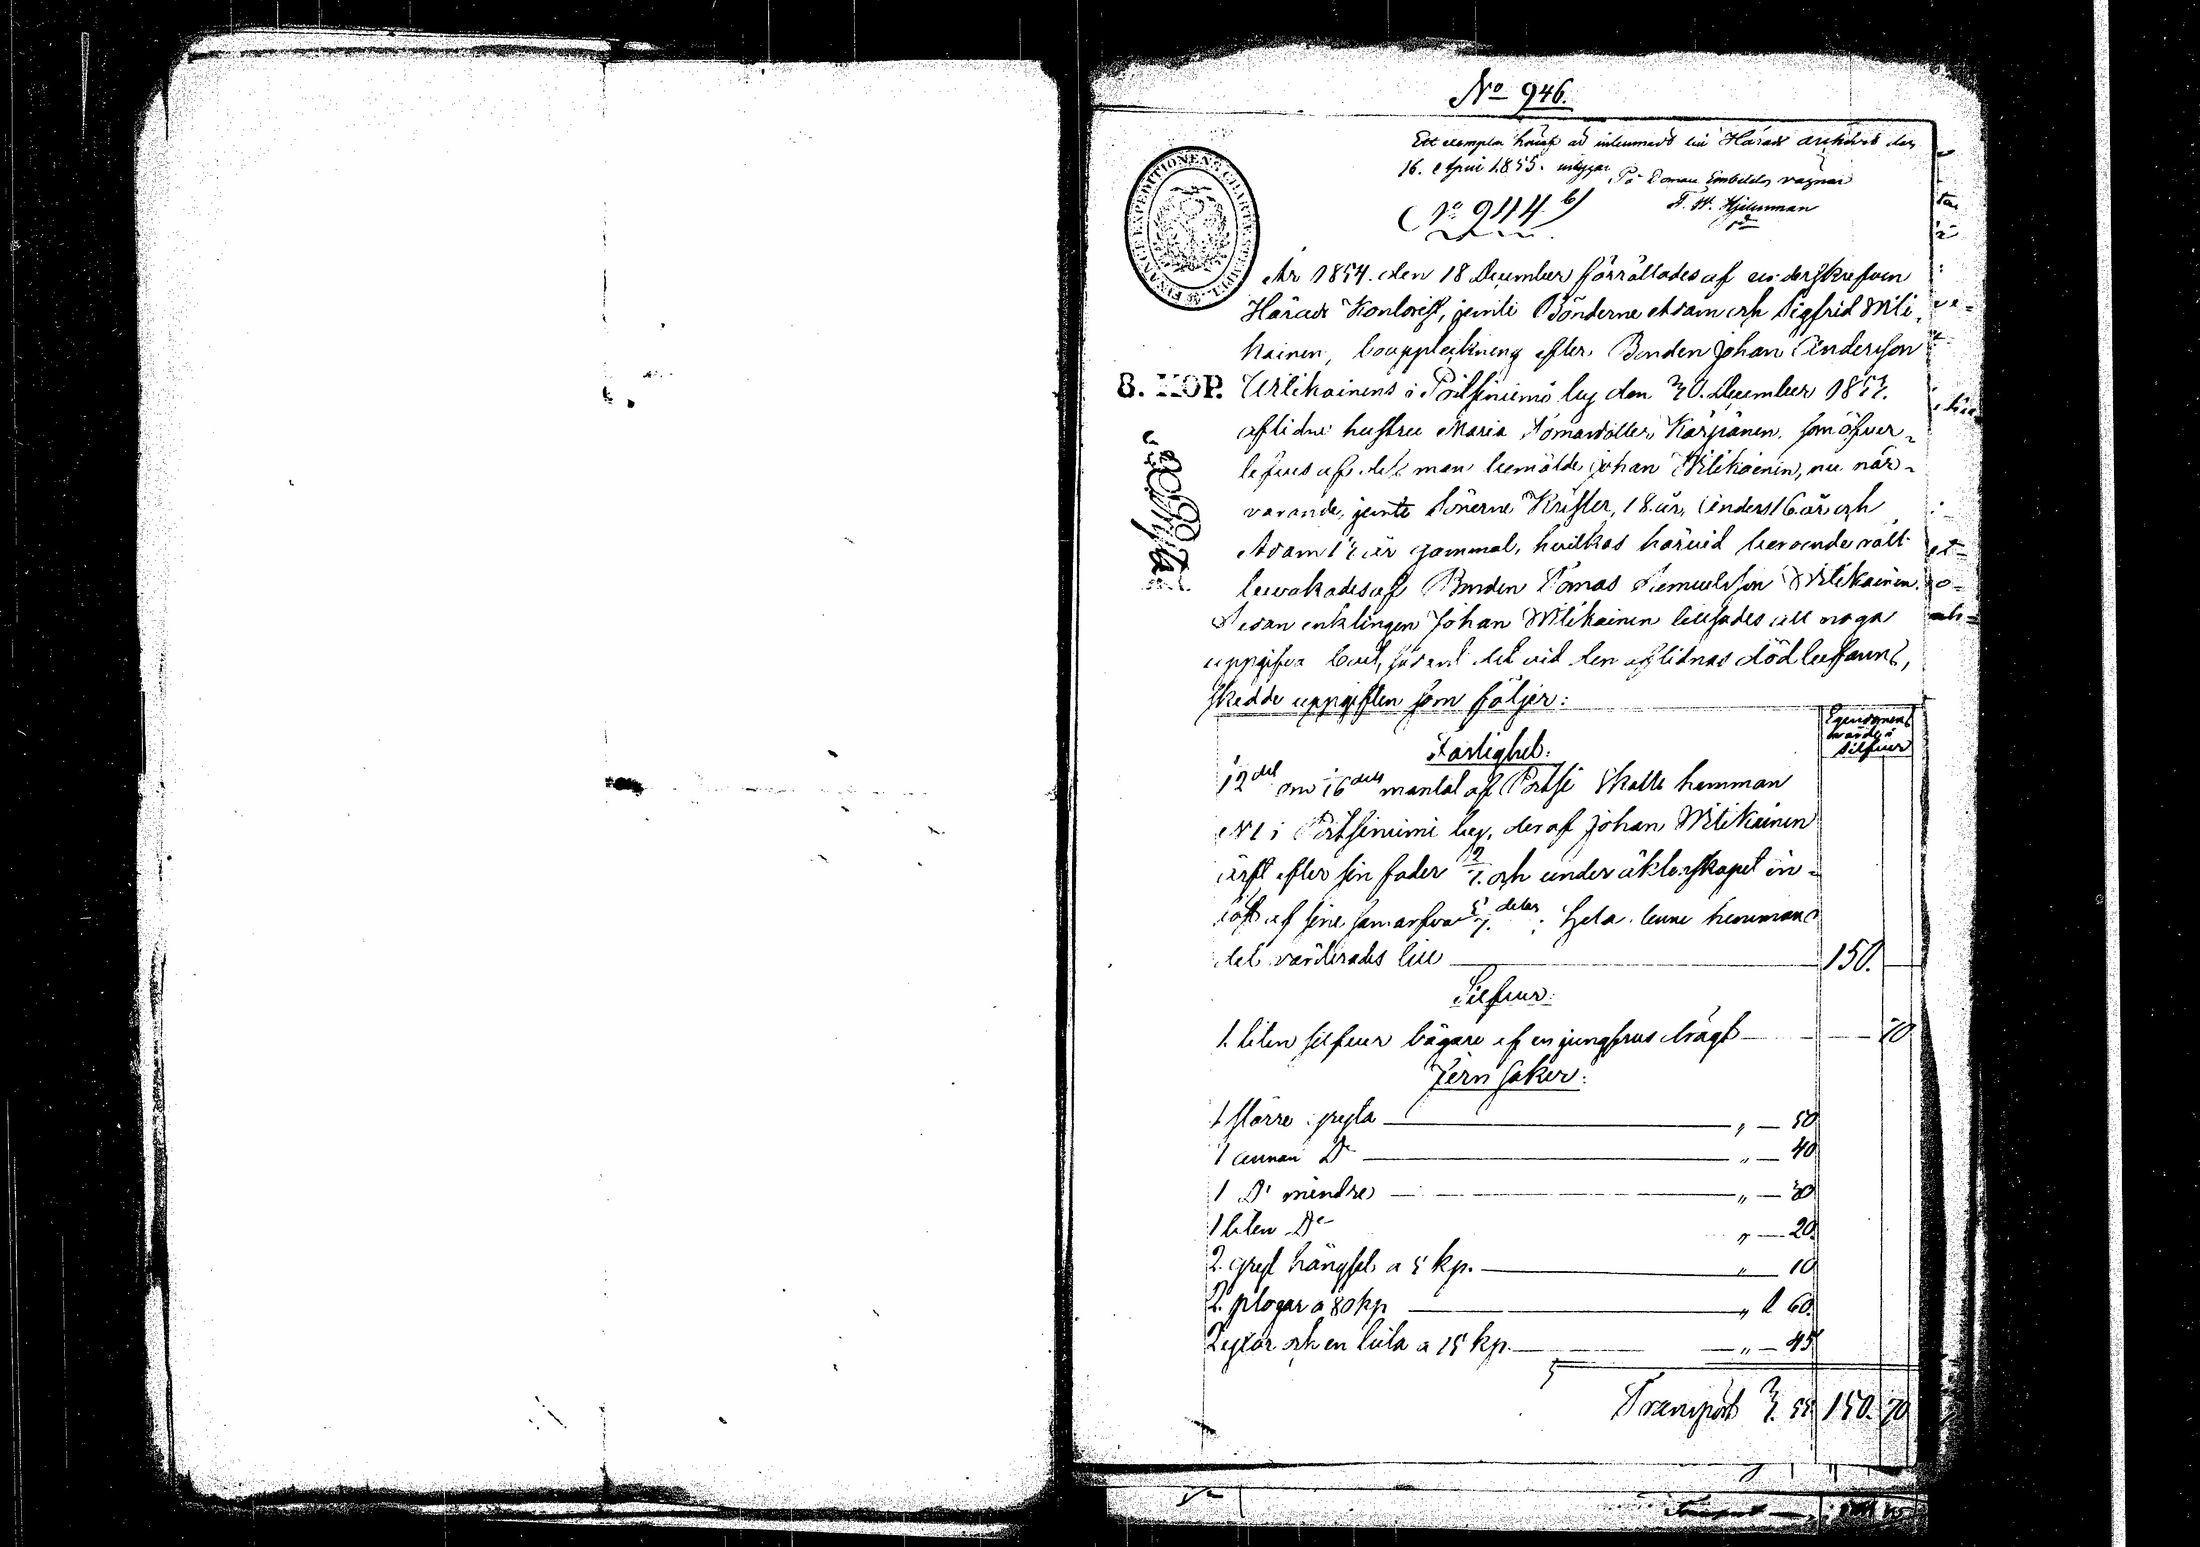 No 946.
Ett exemplar häraf är inkommit till Härads arkivet den
16. April 1855. intygar
På Domare Embetets vägnar
F. W. Hjelmman
No 944 b)
FINANCE EXPEDITIONENS CHARTÆ STEMPEL
År 1854. den 18 December förrättades af underskrefven
Härads Kontorist, jemte Bönderne Adam och Sigfrid Wili-
kainen, bouppteckning efter Bonden Johan Andersson
8. KOP.
Wilikainens i Pötsiniemi by den 30. December 1853.
aflidne hustru Maria Tomasdotter Kärpänen, som öfver-
lefves af dess man bemälde Johan Wilikainen, nu när-
varande, jemte Sönerne Krister, 18. år, Anders 16. år och
Adam 13 år gammal, hvilkas härvid beroende rätt
bevakades af Bonden Tomas Samuelsson Wilikainen.
Sedan enklingen Johan Wilikainen tillsades att noga
uppgifva boet, sådant det vid den aflidnas död befanns,
skedde uppgiften som följer:
Egendomens
värde i
Silfver
Fastighet.
12 del om 16 dels mantal af Pötsi Skatte hemman
N 1 i Pötsiniemi by, deraf Johan Wilikainen
ärft efter sin fader 2/7. och under äktenskapet in-
löst af sine samarfva 5/7. delar; hela denne hemmans
del värderades till 150.
Silfver:
1. liten silfver bägare af en jungfrus drägt 70
Jern saker:
1 större gryta " — 50
1 annan Do " — 40
1 Do mindre " — 30
1 liten Do " — 20.
2. gryt hängsel a 5 kp. " 10
2. plogar a 80 kp " 1 60.
2 yxor och en bila a 15 kp. " — 45
Transport 3. 55. 150. 70